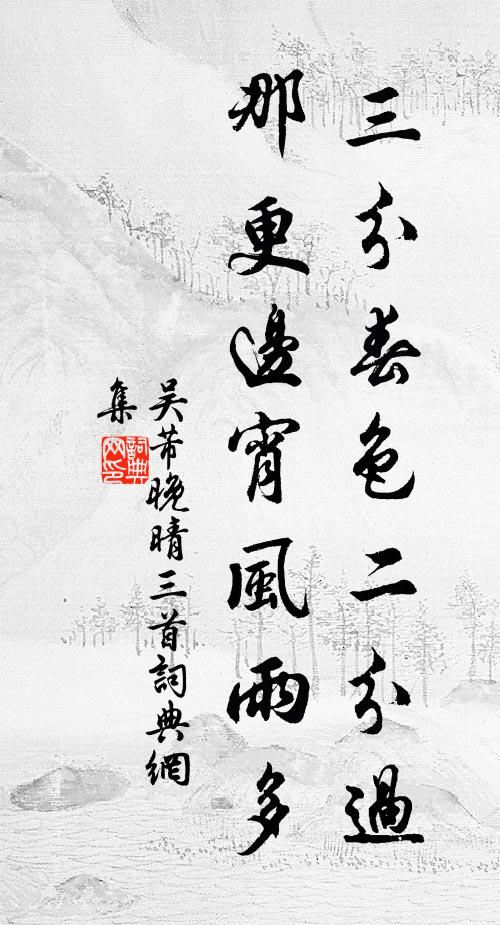 三分春色二分過
那更邊宵風雨多
吴芾晚晴三首詞典網
集
詞典网印